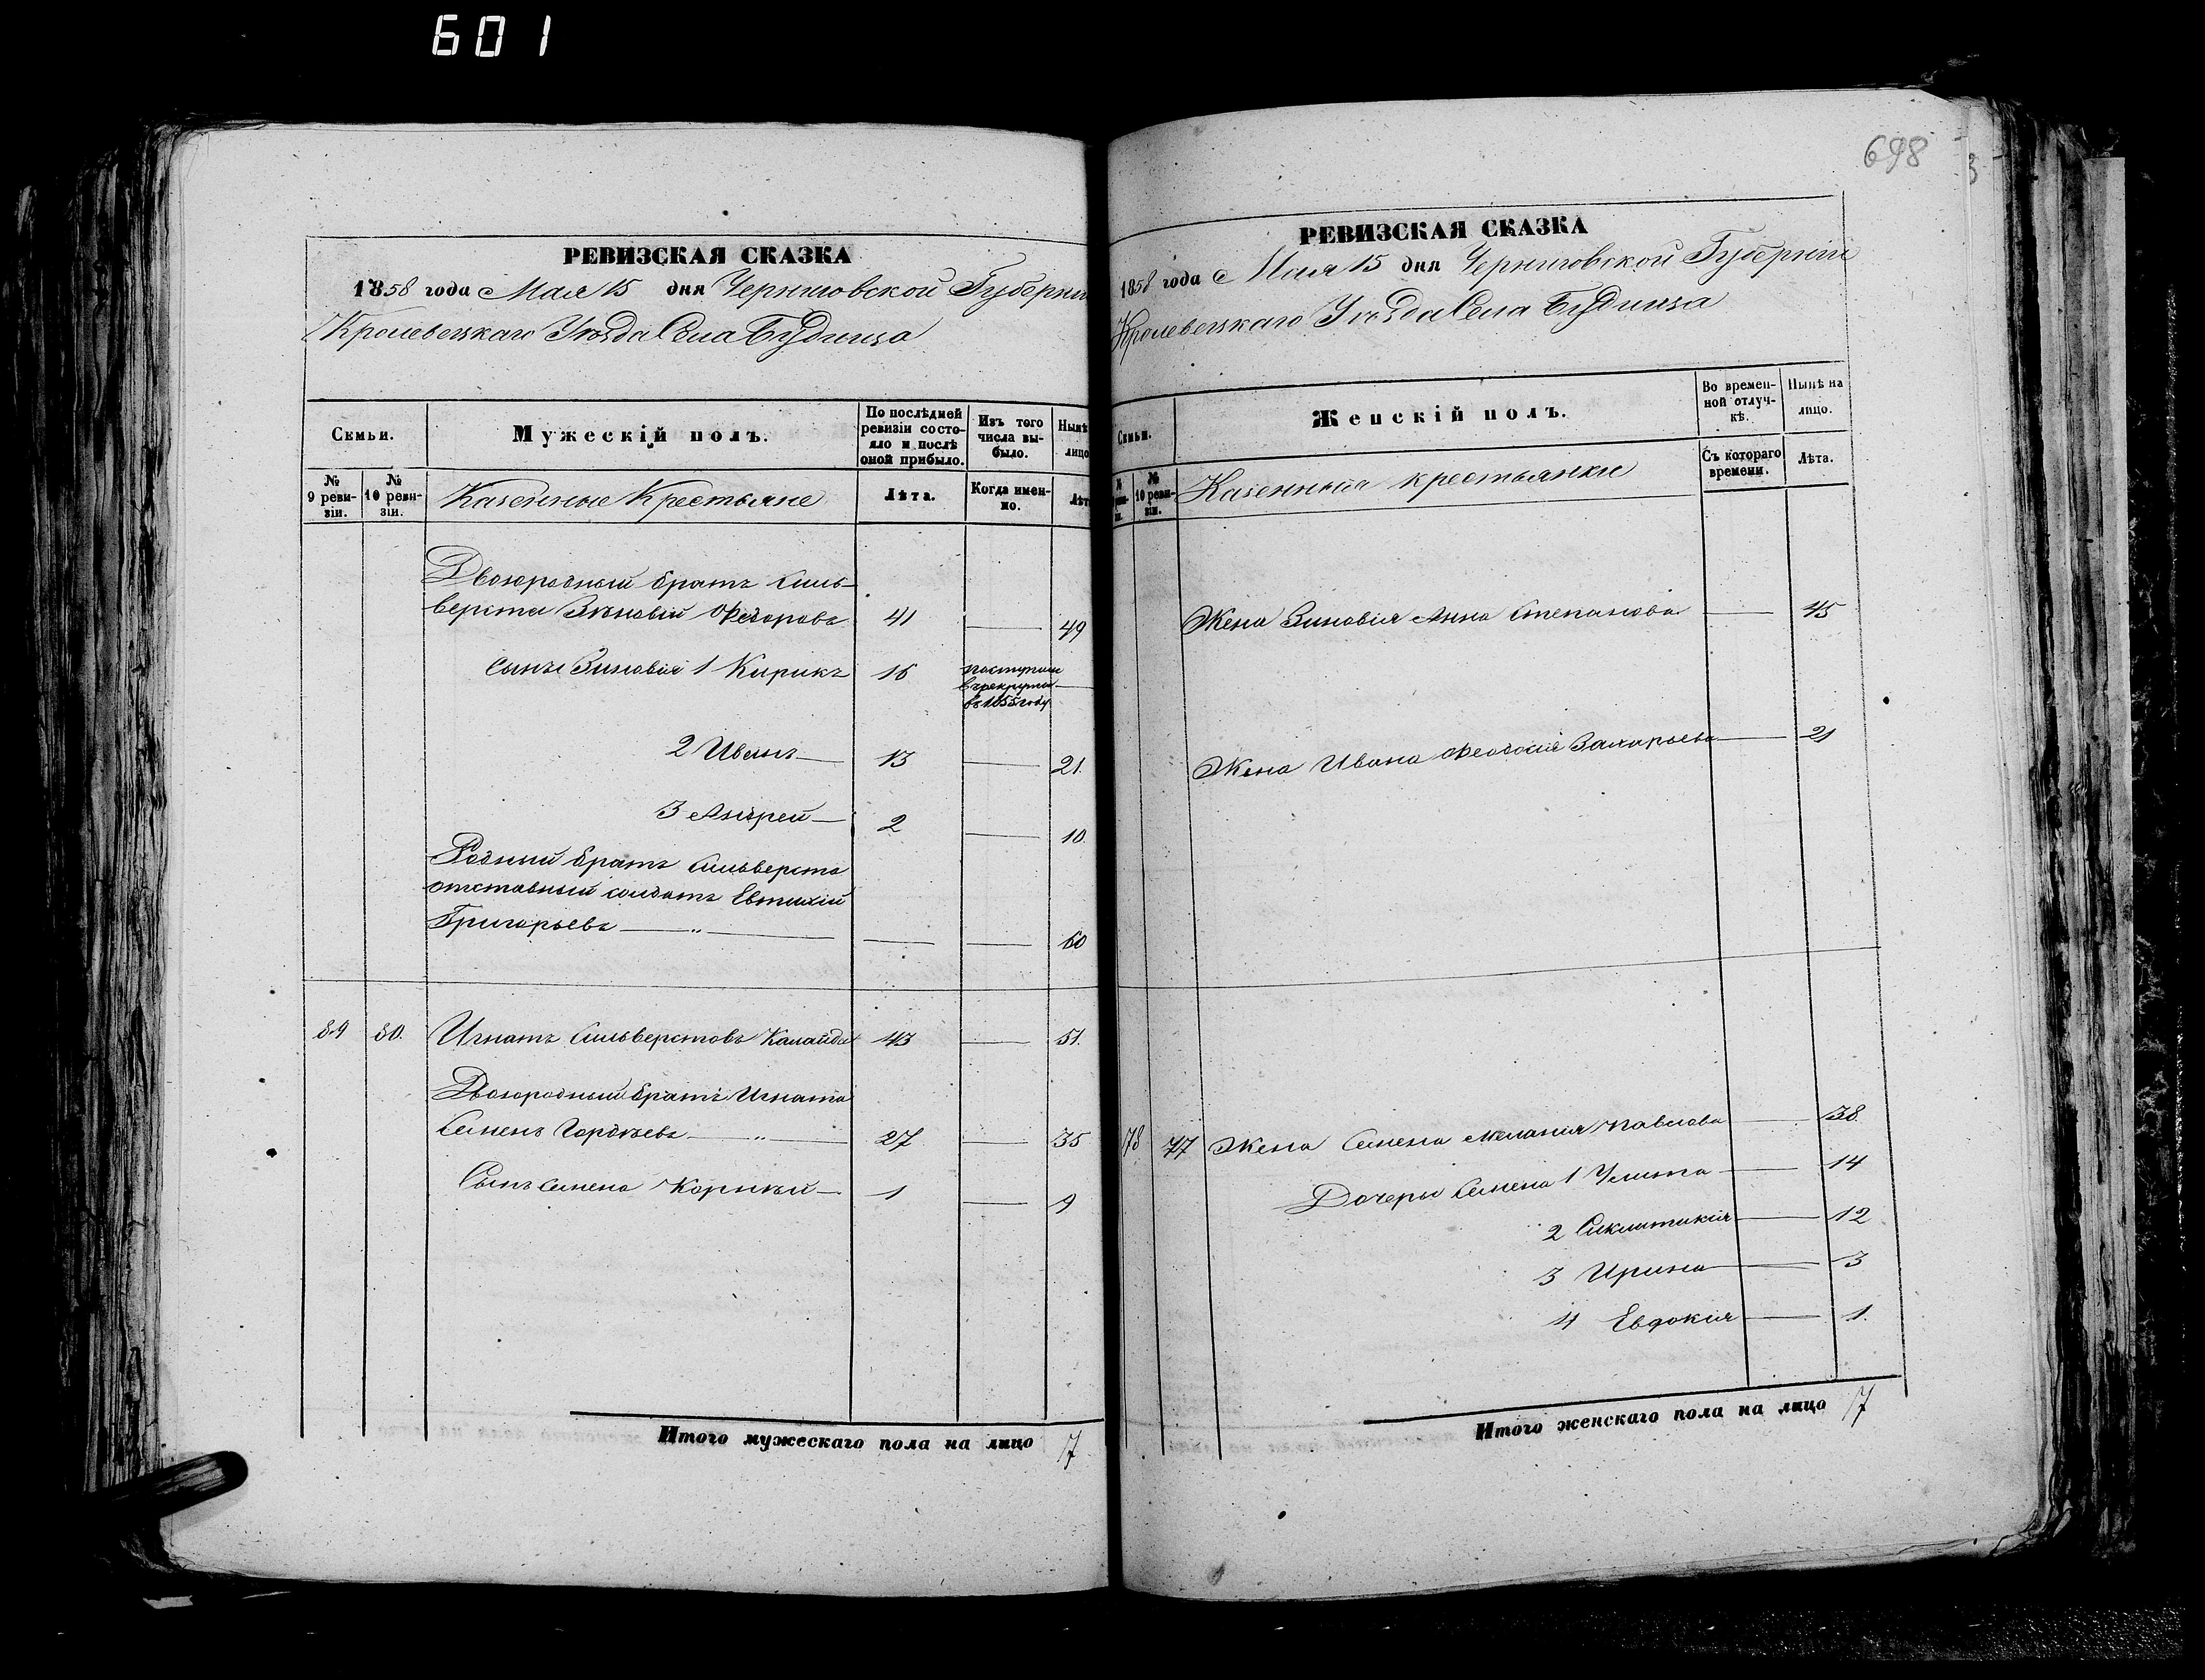 601
698
РЕВИЗСКАЯ СКАЗКА
1858 года Мая 15 дня Черниговской Губерніи
Кролевецкаго Уѣзда Села Будища
Семьи.
Мужескій полъ.
По послѣдней ревизіи состояло и послѣ оной прибыло.
Изъ того числа выбыло.
Нынѣ
лицо
№ 9 ревизіи.
№ 10 ревизіи.
Казенные Крестьяне
Лѣта.
Когда именно.
Лѣт
Двоюродный братъ Силь-
верста Зѣновій Федоровъ 41 49
Сынъ Зиновія 1 Кирикъ 16 поступилъ
в рекруты
въ 1855 году
2 Иванъ 13 21.
3 Андрей 2 10.
Родный братъ Сильверста
отставный солдатъ Евтихій
Григорьевъ 60
80. Игнатъ Сильверстовъ Калайда 43 51.
Двоюродный братъ Игната
Семенъ Гордѣевъ 27 35
Сынъ Семена Корнѣй 1 9
Итого мужескаго пола на лицо 7
РЕВИЗСКАЯ СКАЗКА
1858 года Мая 15 дня Черниговской Губерніи
Кролевецкаго Уѣзда Села Будища
Семьи.
Женскій полъ.
Во временной отлучкѣ.
Нынѣ на лицо.
№ 10 ревизіи.
Казенныя крестьянки
Съ котораго времени.
Лѣта.
Жена Зиновія Анна Степанова 45
Жена Ивана Феодосія Захарьева 21
78 77 Жена Семена Меланія Павлова 38.
Дочери Семена 1 Улита 14
2 Сиклитикія 12
3 Ирина 3
4 Евдокія 1.
Итого женскаго пола на лицо 7